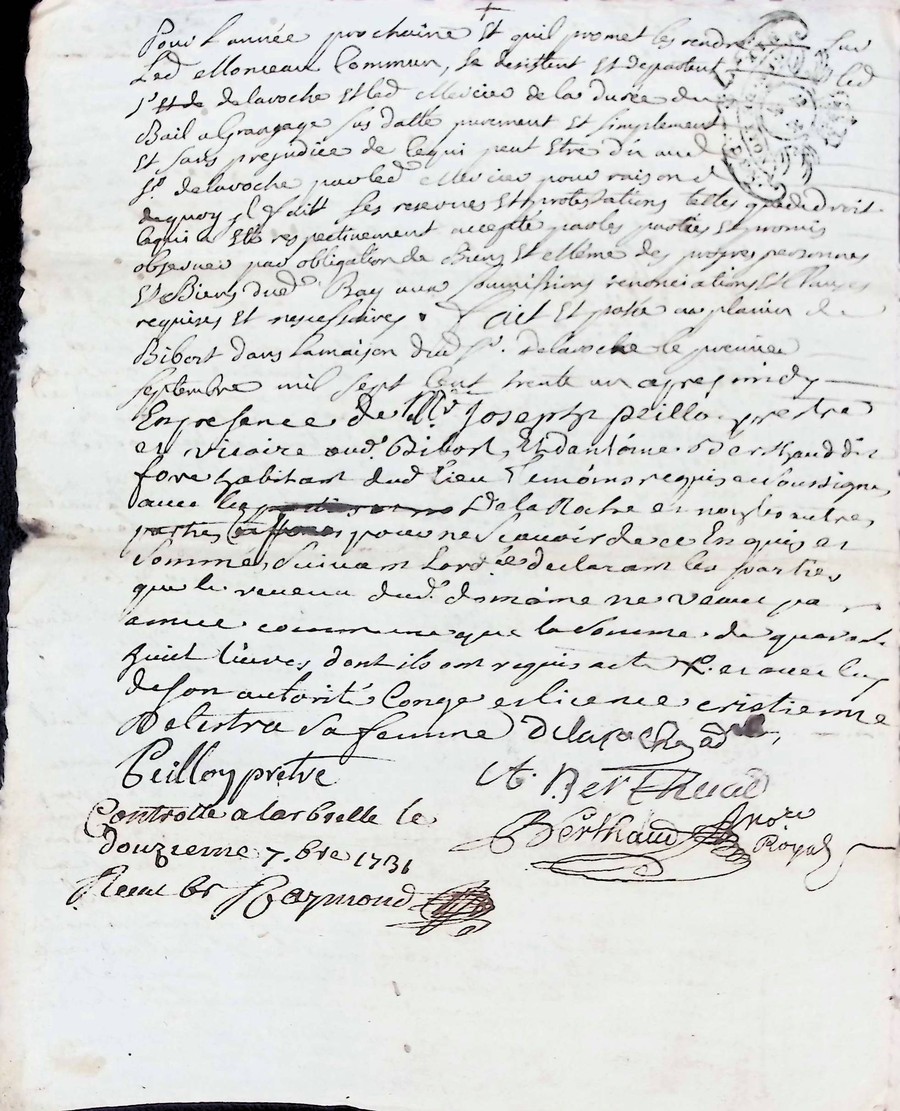 Pour L'année prochaine Et quil promet les rendre sur
Led Monceau Commun, se desistent Et departent led
Sr delaroche Et led Mercier de la durée du
Bail a Grangage sus datté purement Et simplement
Et sans prejudice de Cequi peut Estre dû aud
Sr. delaroche par led Mercier pour raison d
dequoy il fait ses reserves Et protestations telles que de droit
Cequi a Esté respectivement accepté par les parties Et promis
observer par obligation de Biens Et Même des propres personnes
Et Biens dud Ray aux soumissions renonciations Et Clauses
requises Et necessaires. Fait Et passé au plainu de
Bibost dans la maison dud Sr. Delaroche le premier
septembre mil sept Cent trente un apres midy
En presence de Mre Joseph peillo prestre
et vicaire aud. Bibost, Et dantoine Berthaud dit
habitant dud lieu Temoins requis et soussignes
avec les De la Roche et non les autres
parties pour ne scavoir de ce Enquis et
sommes, suivant Lord.ce declarant les parties
que le revenu dud. domaine ne vaut pa
année commune que la somme de quarante
huict livres, dont ils ont requis acte et avec luy
de son autorité Conge et licence cristienne
Delestra sa femme Delaroche
Peilloy pretre A. Berthaud
Controlle a larbrelle le
douzieme 7.bre 1731 Berthaud Nore Royal
Recu Raymond